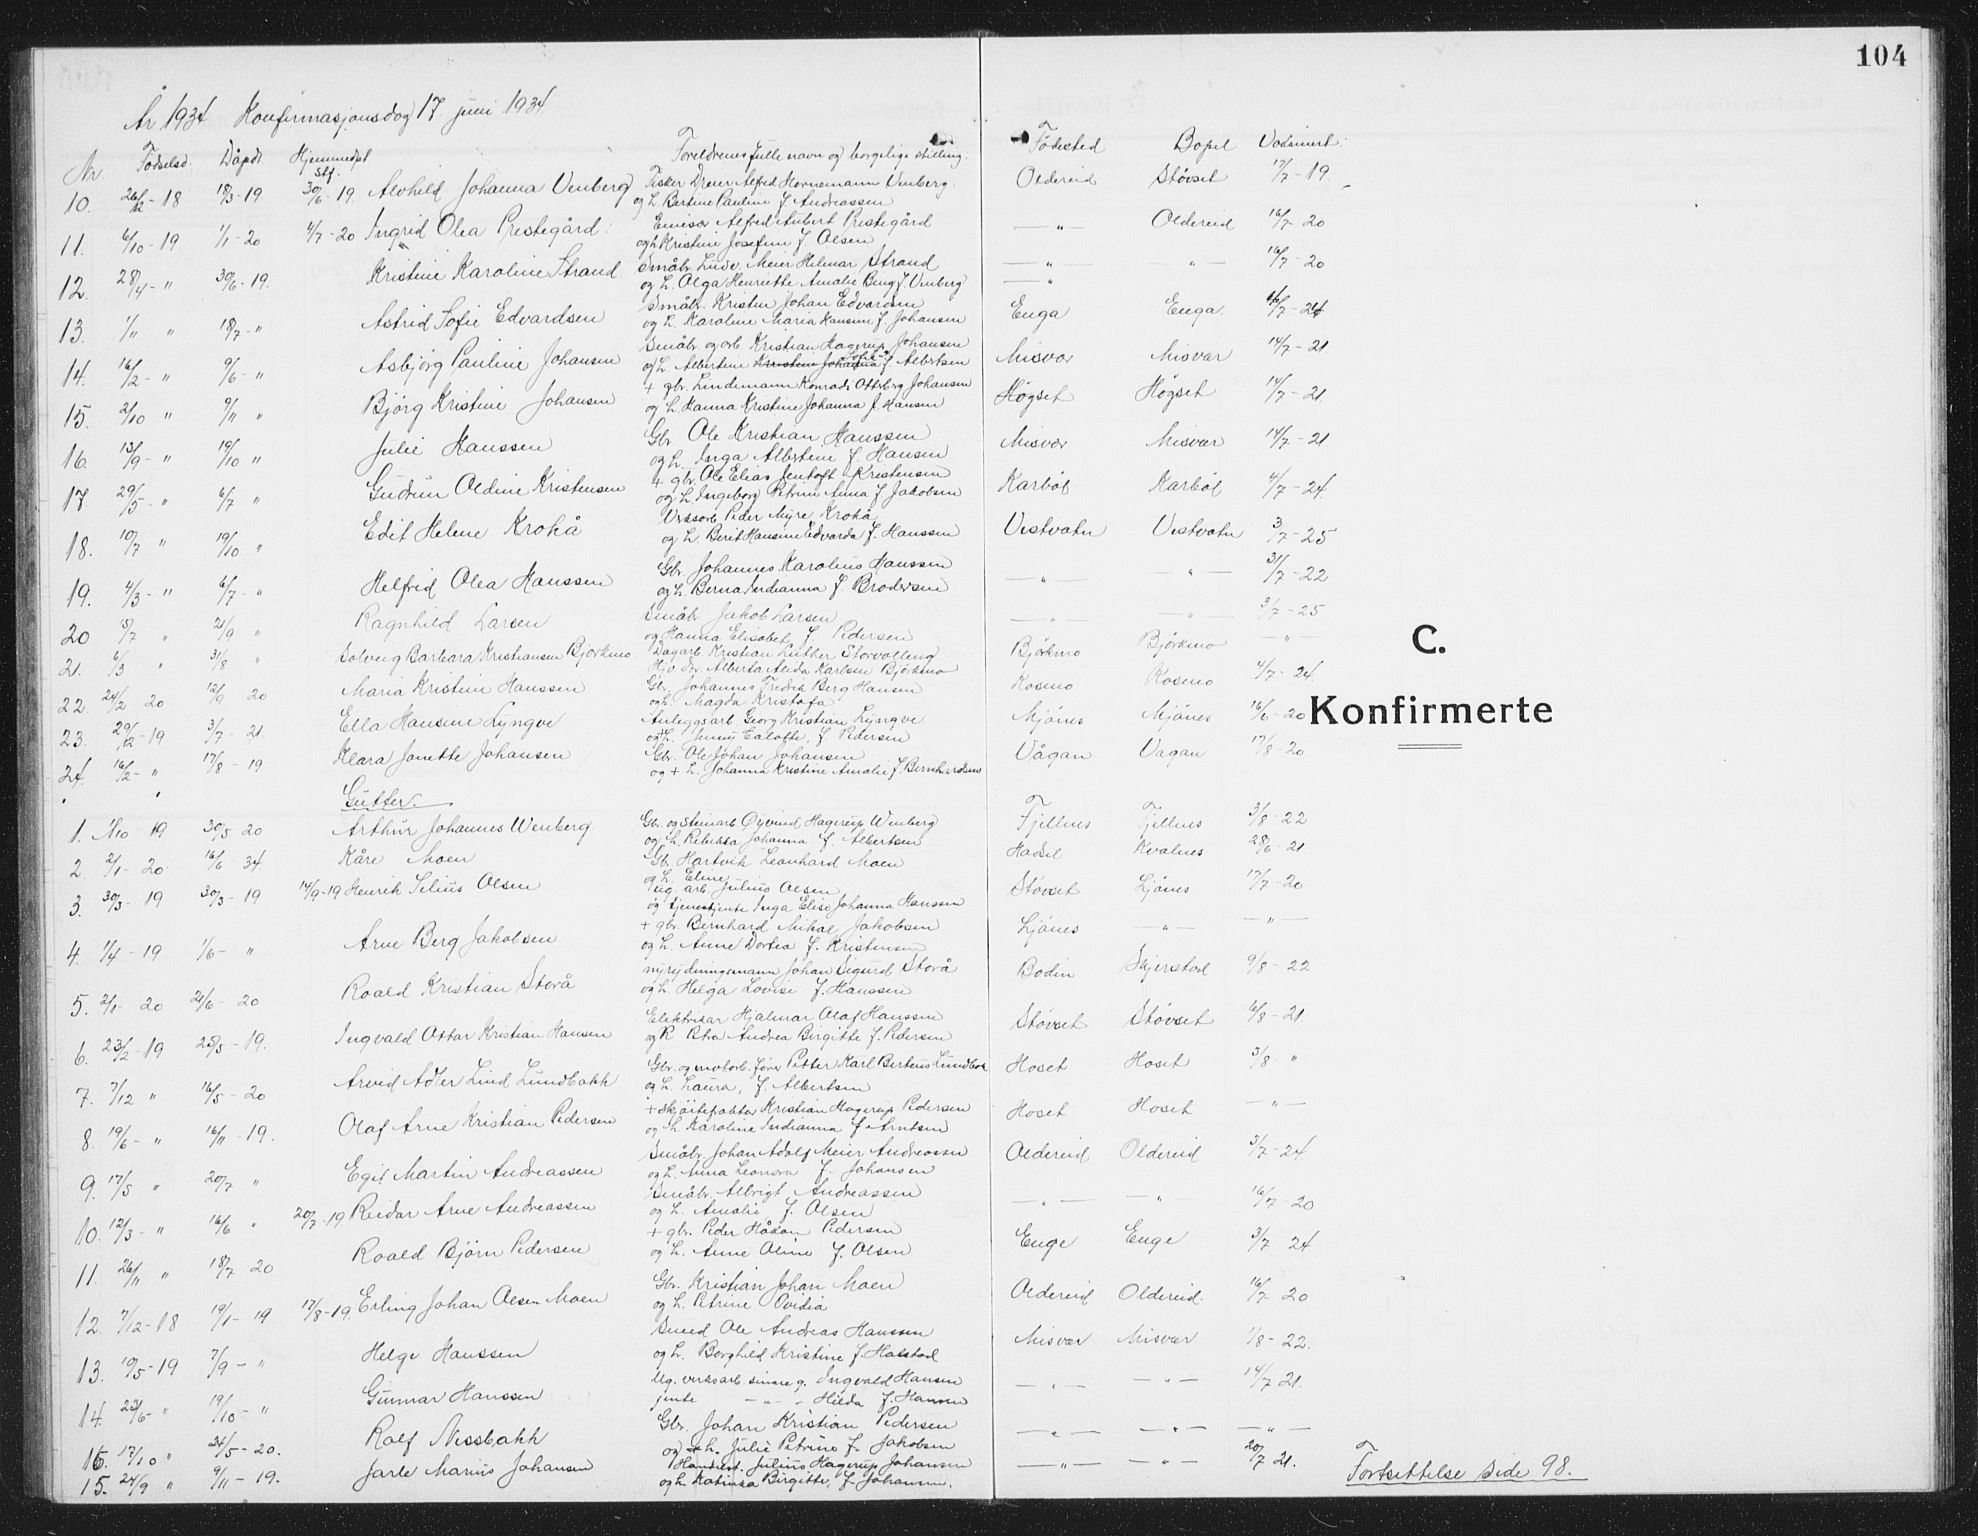 104
År 1934 Konfirmasjonsdag 17 juni 1934
Nr. Fødselsd. Dåpdt Hjemmedpt stf. Foreldrenes fulle navn og borgelige stilling. Fødested Bopel Vaksinert:
10. 26/12-18 18/3-19 30/6-19. Alvhild Johanna Venberg Fisker Dreier Alfred Hornemann Venberg. Oldereid Støvset 17/7-19
og h. Bertine Pauline f. Andreassen
11. 6/10-19. 1/1-20 4/7-20 Ingrid Olea Prestegård: Emisær Alfred Aubert Prestegård -"- Oldereid 16/7-20
og h Kristine Josefine f. Olsen
12. 28/4-" 30/6-19. Kristine Karoline Strand Småbr. Ludv. Meier Helmar Strand -"- -"- 16/7-20
og h. Olga Henriette Amalie Berg f. Venberg -"-
13. 1/11 " 18/7-" Astrid Sofie Edvardsen Småbr. Kristen Johan Edvardsen Enga Enga 16/7-24
og h. Karoline Maria Hansine f. Johansen
14. 16/2-" 9/6-" Asbjörg Pauline Johansen Småbr og arb Kristian Hagerup Johansen Misvær Misvær 14/7-21
og h. Albertine Kristine Johanna f. Albertsen
15. 2/10 " 9/11 " Björg Kristine Johansen + gbr. Lindemann Konradi Ottsberg Johansen Högset Högset 14/7-21.
og h. Hanna Kristine Johanna f. Hansen
16. 13/9-" 19/10 " Julie Hanssen Gbr. Ole Kristian Hanssen Misvær Misvær 14/7-21
og h. Inga Albertine f. Hansen
17. 29/5-" 6/7 " Gudrun Oldine Kristensen + gbr. Ole Elias Jentoft Kristensen Karbøl Karbøl 4/7-24
og h. Ingeborg Petrine Anna f. Jakobsen
18. 10/7 " 19/10 " Edit Helene Krokå Verksarb Peder Myre Krokå Vestvatn Vestvatn 3/7-25
og h. Berit Hansine Edvarda f. Hanssen
19. 4/3-" 6/7-" Helfrid Olea Hanssen Gbr. Johannes Karolius Hanssen -"- -"- 31/7-22
og h. Berna Indianna f. Brodersen
20 15/7 " 21/9 " Ragnhild Larsen Småbr Jakob Larsen -"- -"- 3/7-25
og Hanna Elisabet f. Pedersen
21. 6/3 " 31/8 " Solveig Barbara Kristiansen Björkmo Dagarb. Kristian Luther Storvolleng Björkmo Björkmo -"-
Hjv. dr. Alberta Alida Karlsen Björkmo
22. 24/2 20 12/9 20 Maria Kristine Hanssen Gbr. Johannes Fredrik Berg Hansen Kosmo Kosmo 4/7-24
og h. Magda Kristofa
23. 29/12-19 3/7-21 Ella Hansine Lyngve Anleggsarb. Georg Kristian Lyngve Mjönes Mjönes 16/6-20
og h. Jenny Calotte, f Pedersen
24. 16/2-" 17/8-19 Klara Janette Johansen Gbr. Ole Johan Johansen Vågan Vågan 17/8-20
og + h. Johanna Kristine Amalie f Bernhardsen
C.
Konfirmerte
Gutter.
1. 1/10-19 30/5 20 Arthur Johannes Wenberg. Gbr. og steinarb Øyvind Hagerup Wenberg Fjellnes Fjellnes 3/8-22
og h. Rebekka Johanna f. Albertsen
2 2/1-20 16/6-34 Kåre Moen Gbr. Hartvik Leonhard Moen Hadsel Kvalnes 28/6-21
og h. Eline
3. 30/3-19 30/3-19 14/9-19 Henrik Selius Olsen ug. arb. Julius Olsen Støvset Ljönes 17/7-20
og tjenestjente Inga Elise Johanna Hanssen
4. 1/4-19 1/6-" Arne Berg Jakobsen + gbr. Bernhard Mikal Jakobsen Ljönes -"- -"-
og h. Anne Dortea f. Kristensen
5. 2/1-20 21/6-20 Roald Kristian Storå nyrydningsmann Johan Sigurd Storå Bodin Skjerstad 9/8-22
og h. Helga Lovise f. Hanssen
6. 23/2-19 25/5-19. Ingvald Ottar Kristian Hansen Elektriker Hjalmar Olaf Hanssen Støvset Støvset 6/8-21
og h Petra Andrea Birgitte f. Pedersen
7. 7/12 " 16/5-20 Arvid Adler Lind Lundbakk Gbr. og motorb. fører Petter Karl Bertens Lundbak Hoset Hoset 3/8-"
og h. Laura, f. Albertsen
8. 19/6-" 16/11-19. Olaf Arne Kristian Pedersen + skjöitefører Kristian Hagerup Pedersen Hoset Hoset -"-
og h. Karoline Indianna f. Arntsen
9. 17/5 " 20/7 " Egil Martin Andreassen Småbr. Johan Adolf Meier Andreassen Oldereid Oldereid 3/7-24
og h. Anna Leonora f. Johansen
10. 12/3-" 16/6 " 20/7-19 Reidar Arne Andreassen Småbr. Albrigt Andreassen -"- -"- 16/7-20
og h. Amalie f. Olsen
11. 26/11 " 18/7 20 Roald Björn Pedersen + gbr. Peder Håkon Pedersen Enge Enge 3/7 24
og h. Anne Oline f. Olsen
12. 7/12-18 19/1-19 17/8-19. Erling Johan Olsen Moen Gbr. Kristian Johan Moen Oldereid Oldereid. 16/7 20
og h. Petrine Ovidia
13. 10/5-19 7/9-" Helge Hanssen Smed Ole Andreas Hanssen Misvær Misvær 1/8-22.
og h. Borghild Kristine f. Halstad
14. 23/6-" 19/10-" Gunnar Hanssen Ug. verksarb senere g. Ingvald Hansen -"- -"- 14/7 21.
jente -"- Hilda f. Hansen
16. 17/10 " 24/5-20. Rolf Nessbakk Gbr. Johan Kristian Pedersen -"- -"- -"-
og + h. Julie Petrine f. Jakobsen
15. 24/9 " 9/11-19. Jarle Marius Johansen Handelst. Julius Hagerup Johansen -"- -"- 20/7 21.
og h Katinka Birgitte, f. Johansen.
Fortsettelse side 98.